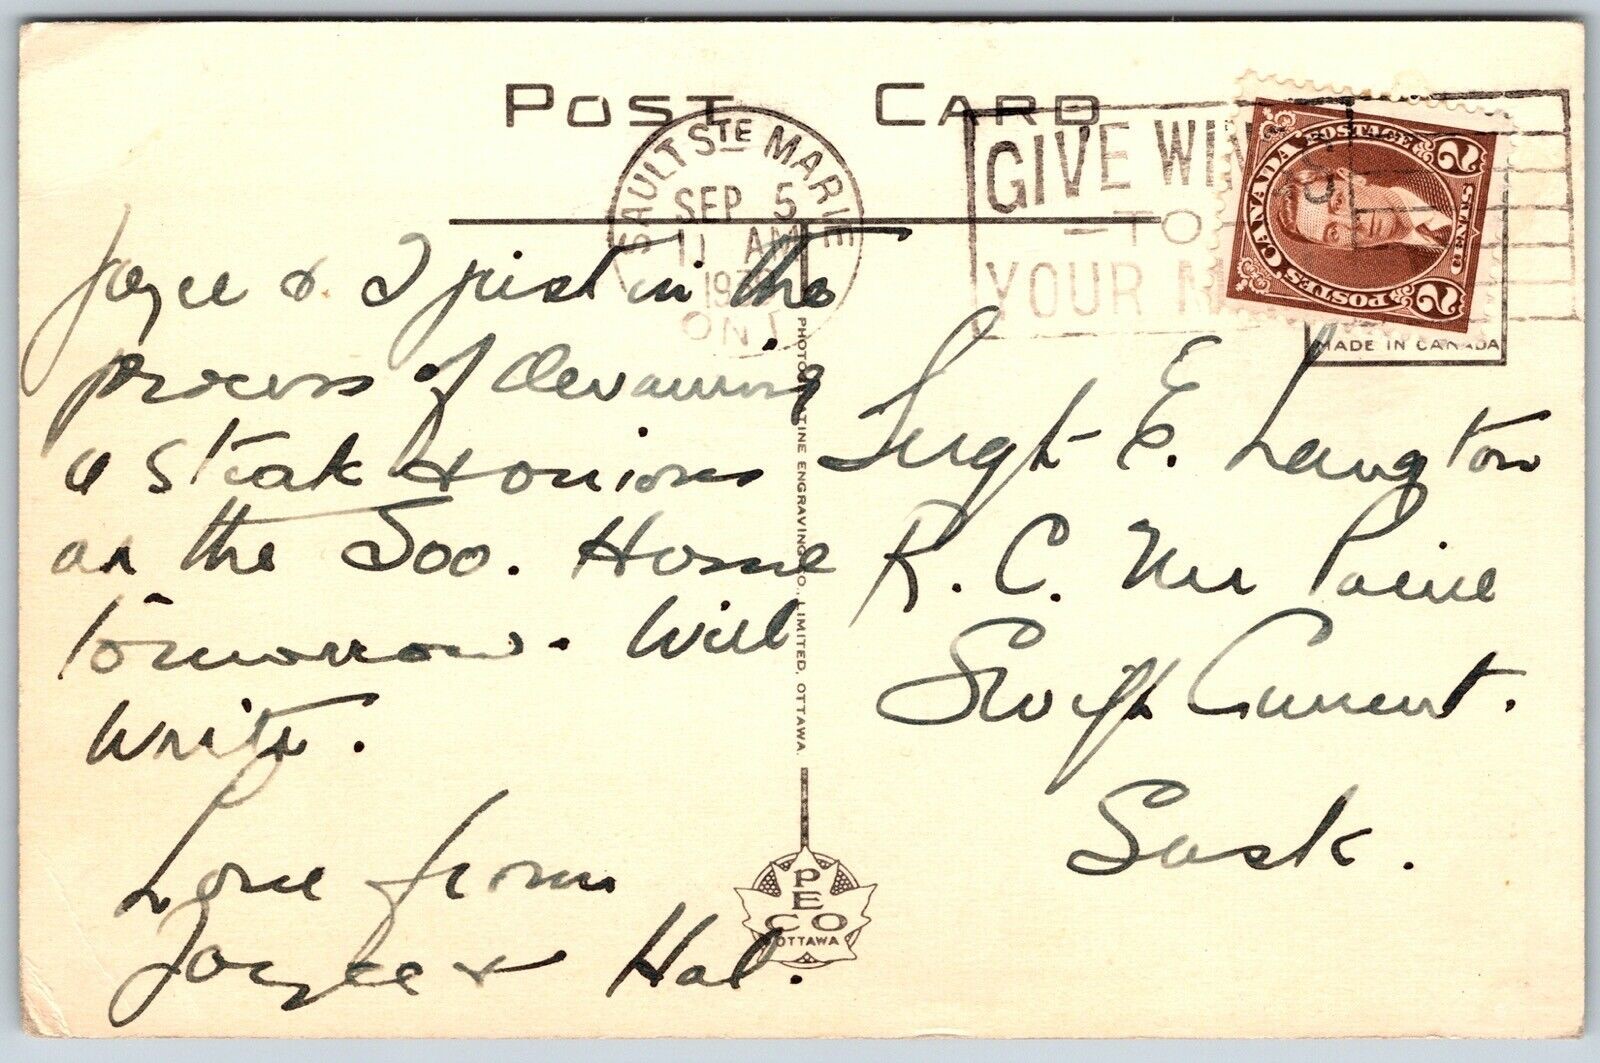 POST CARD
SAULT STE MARIE
SEP 5
11 AM
ONT
GIVE WINGS
- TO
YOUR
CANADA POSTAGE
POSTES CANADA
2 2
MADE IN CANADA
Joyce & I just in the
process of devouring
a steak & onions
in the Soo. Home
tomorrow. Will
write.
Love from
Joyce & Hal.
PECO
OTTAWA
ENGRAVING CO., LIMITED, OTTAWA
Sergt E. Langton
R. C. M. Police
Swift Current.
Sask.